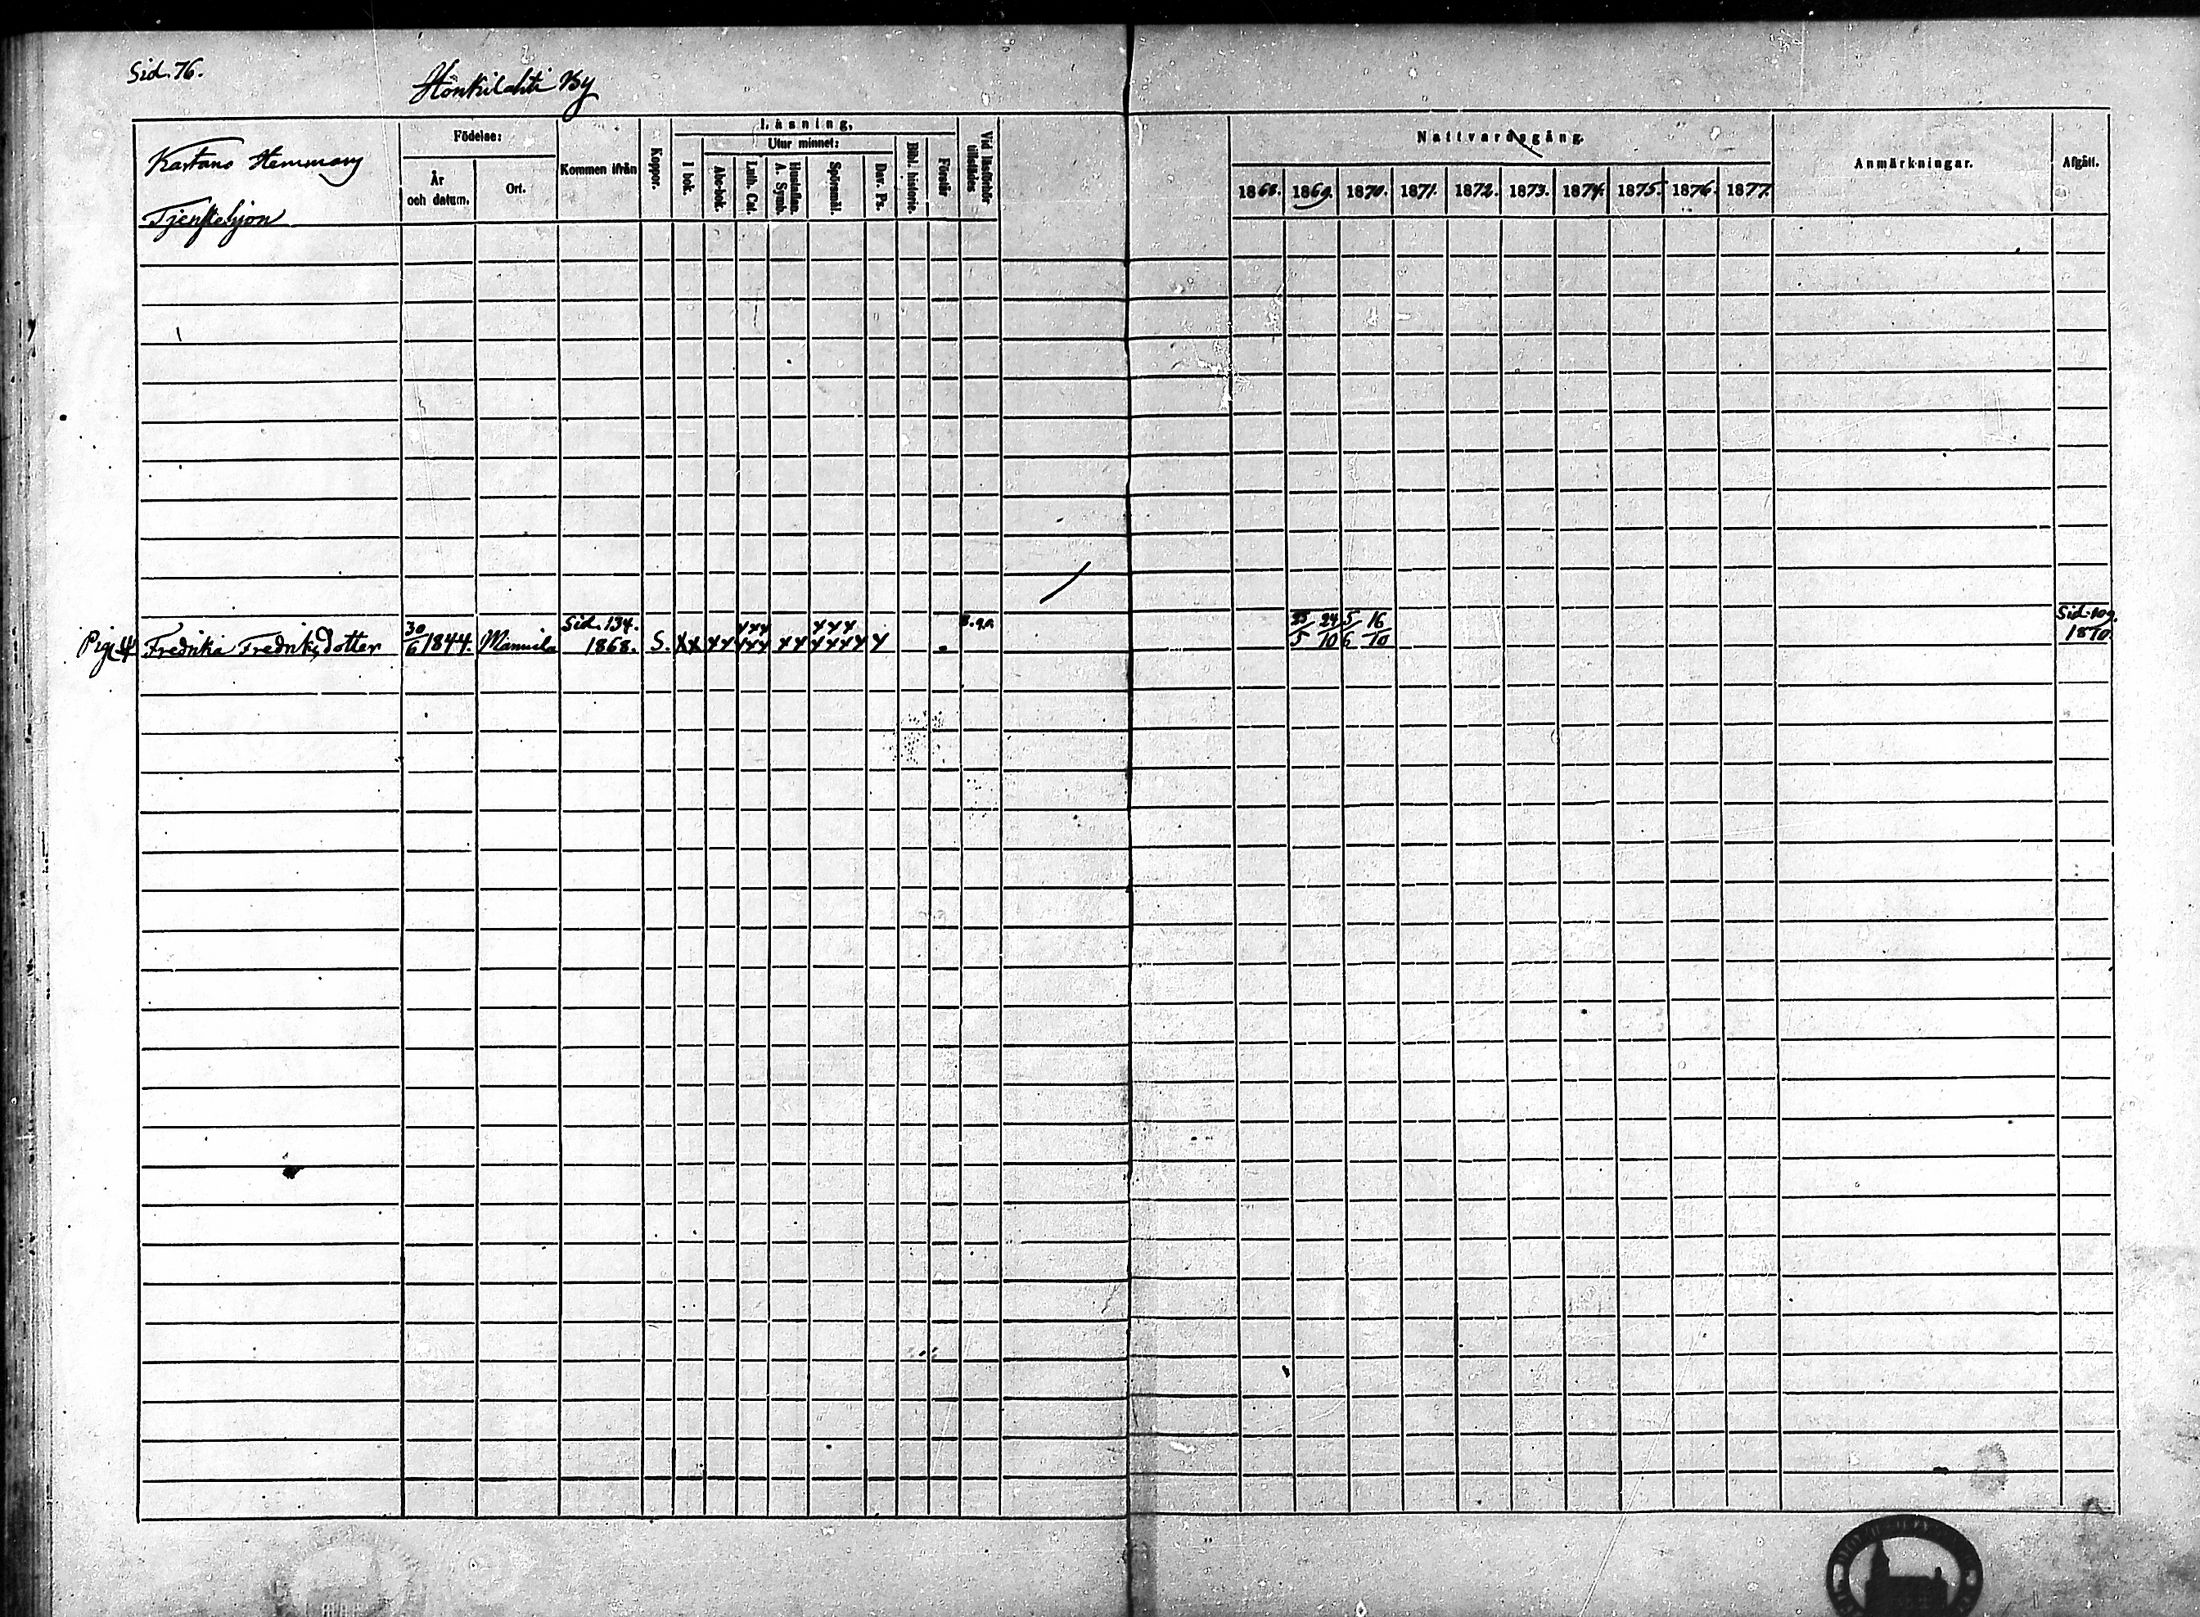 Sid. 76.
Honkilahti By
Kartano Hemmans
Tjenstehjon
Födelse:
År och datum.
Ort.
Kommen ifrån
Koppor.
Läsning,
Utur minnet:
I bok.
Abc-bok.
Luth. Cat.
Hustaflan. A. Symb.
Spörsmål.
Dav. Ps.
Bibl. historie.
Förstår
Vid läsförhör tillstädes
Nattvardsgång.
1868. 1869. 1870. 1871. 1872. 1873. 1874. 1875. 1876. 1877.
Anmärkningar.
Afgått.
Sid. 134. Sid. 109.
Fredrika Fredriksdotter 30/6 1844. Mannila 1868. S. 25/5 24/10 5/6 16/10 1870.